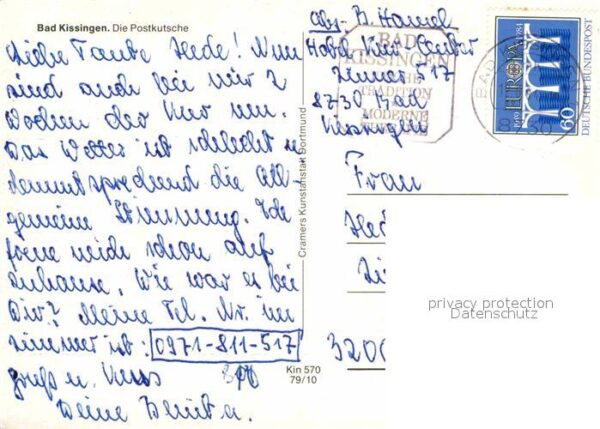 Bad Kissingen. Die Postkutsche
Liebe Tante Hede! Nun
sind auch bei mir 2
Wochen der Kur um.
Das Wetter ist schlecht u.
dementsprechend die All-
gemeine Stimmung. Ich
freue mich schon auf
zuhause. Wie war es bei
Dir? Meine Tel. Nr. im
Zimmer ist: 0971-811-517
Gruß u. Kuss
Deine
Cramers Kunstanstalt Dortmund
Kin 570
79/10
Abs. B. Hamel
Hotel Kur-Center
Zimmer 517
8730 Bad
Kissingen
BAD
KISSINGEN
TRADITION
MODERNE
EUROPA
60
DEUTSCHE BUNDESPOST
Frau
Hed
320
privacy protection
Datenschutz